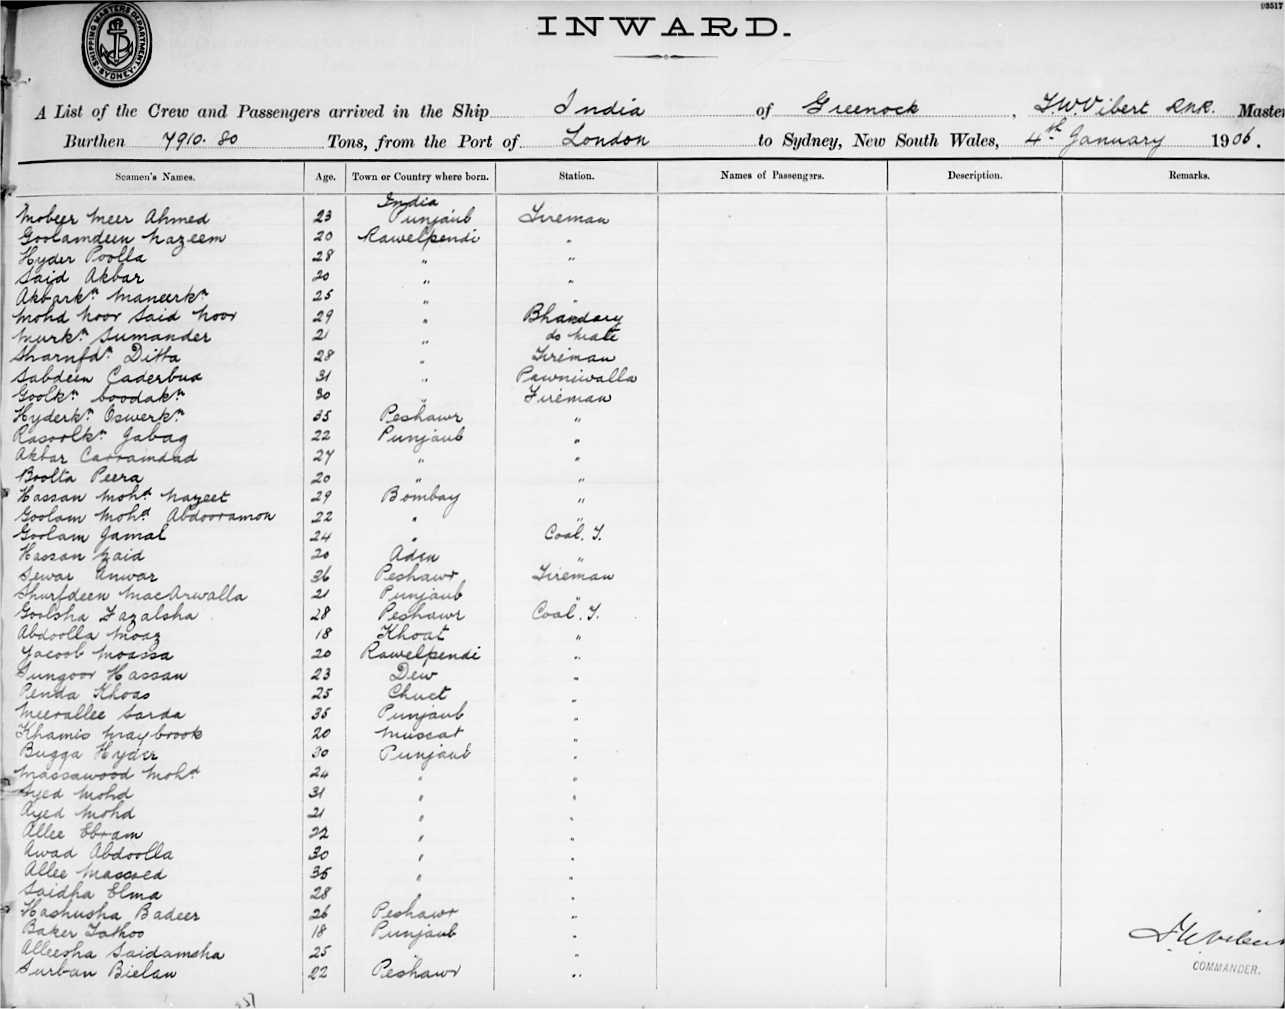 93517
SHIPPING MASTERS DEPARTMENT SYDNEY
INWARD.
A List of the Crew and Passengers arrived in the Ship India of Greenock, T.W. Vibert R.N.R. Master
Burthen 7910.80 Tons, from the Port of London to Sydney, New South Wales, 4th January 1906.
Seamen's Names. Age. Town or Country where born. Station. Names of Passengers. Description. Remarks.
India
Mobeer Meer Ahmed 23 Punjaub Fireman
Goolamdeen Nazeem 20 Rawelpendi "
Hyder Poolla 28 " "
Said Akbar 20 " "
Akbarkn Maneerkn 25 " "
Mohd Noor Said Noor 29 " Bhandary
Murkn Sumander 21 " do Mate
Sharnfdn Ditta 28 " Fireman
Sabdeen Caderbux 31 " Pawniwalla
Goolkn boodakn 30 " Fireman
Hyderkn Oswerkn 35 Peshawr "
Rasoolkn Jabag 22 Punjaub "
Akbar Carramdad 27 " "
Boolta Peera 20 " "
Hassan Mohd Nazeet 29 Bombay "
Goolam Mohd Abdooramon 22 " "
Goolam Jamal 24 " Coal. T.
Hassan Zaid 20 Aden "
Sewar Anwar 36 Peshawr Fireman
Shurfdeen MacArwalla 21 Punjaub "
Goolsha Fazalsha 28 Peshawr Coal. T.
Abdoolla Moaz 18 Khoat "
Yacoob Moassa 20 Rawelpendi "
Sungoor Hassan 23 Dew "
Penda Khoas 25 Chuct "
Meerallee Sarda 35 Punjaub "
Khamis Maybrook 20 Muscat "
Bugga Hyder 30 Punjaub "
Massawood Mohd 24 " "
Syed Mohd 31 " "
Ayed Mohd 21 " "
Allee Ebram 22 " "
Awad Abdoolla 30 " "
Allee Massoed 35 " "
Saidha Elma 28 " "
Hashusha Badeer 26 Peshawr "
Baker Fathoo 18 Punjaub "
Alleesha Saidamsha 25 " "
Surban Bielan 22 Peshawr "
T.W. Vibert
COMMANDER.